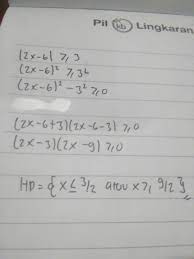 Pil kb Lingkaran
|2x-6| ≥ 3
(2x-6)² ≥ 3²
(2x-6)² - 3² ≥ 0
(2x-6+3)(2x-6-3) ≥ 0
(2x-3)(2x-9) ≥ 0
HP = { x ≤ 3/2 atau x ≥ 9/2 }